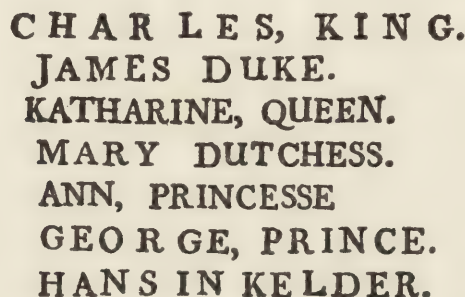 CHARLES, KING.
JAMES DUKE.
KATHARINE, QUEEN.
MARY DUTCHESS.
ANN, PRINCESSE
GEORGE, PRINCE.
HANS IN KELDER.